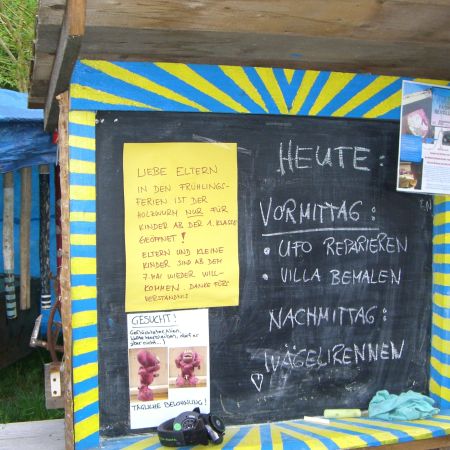 LIEBE ELTERN
IN DEN FRÜHLINGS-
FERIEN IST DER
HOLZWURM NUR FÜR
KINDER AB DER 1. KLASSE
GEÖFFNET!
ELTERN UND KLEINE
KINDER SIND AB DEM
7. MAI WIEDER WILL-
KOMMEN. DANKE FÜRS
VERSTÄNDNIS
GESUCHT!
TÄGLICHE BELOHNUNG!
HEUTE:
VORMITTAG:
• UFO REPARIEREN
• VILLA BEMALEN
NACHMITTAG:
WÄGELIRENNEN